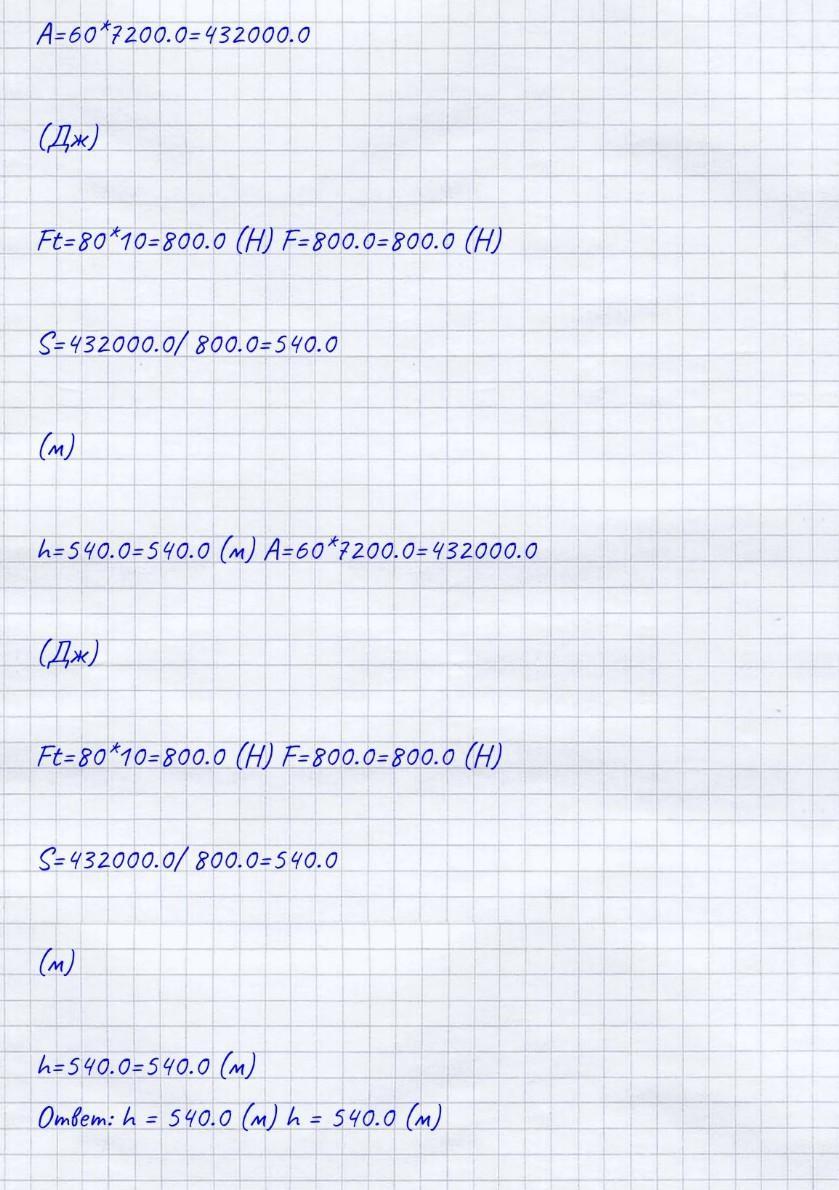 A=60*7200.0=432000.0
(Дж)
Ft=80*10=800.0 (Н) F=800.0=800.0 (Н)
S=432000.0/ 800.0=540.0
(м)
h=540.0=540.0 (м) A=60*7200.0=432000.0
(Дж)
Ft=80*10=800.0 (Н) F=800.0=800.0 (Н)
S=432000.0/ 800.0=540.0
(м)
h=540.0=540.0 (м)
Ответ: h = 540.0 (м) h = 540.0 (м)